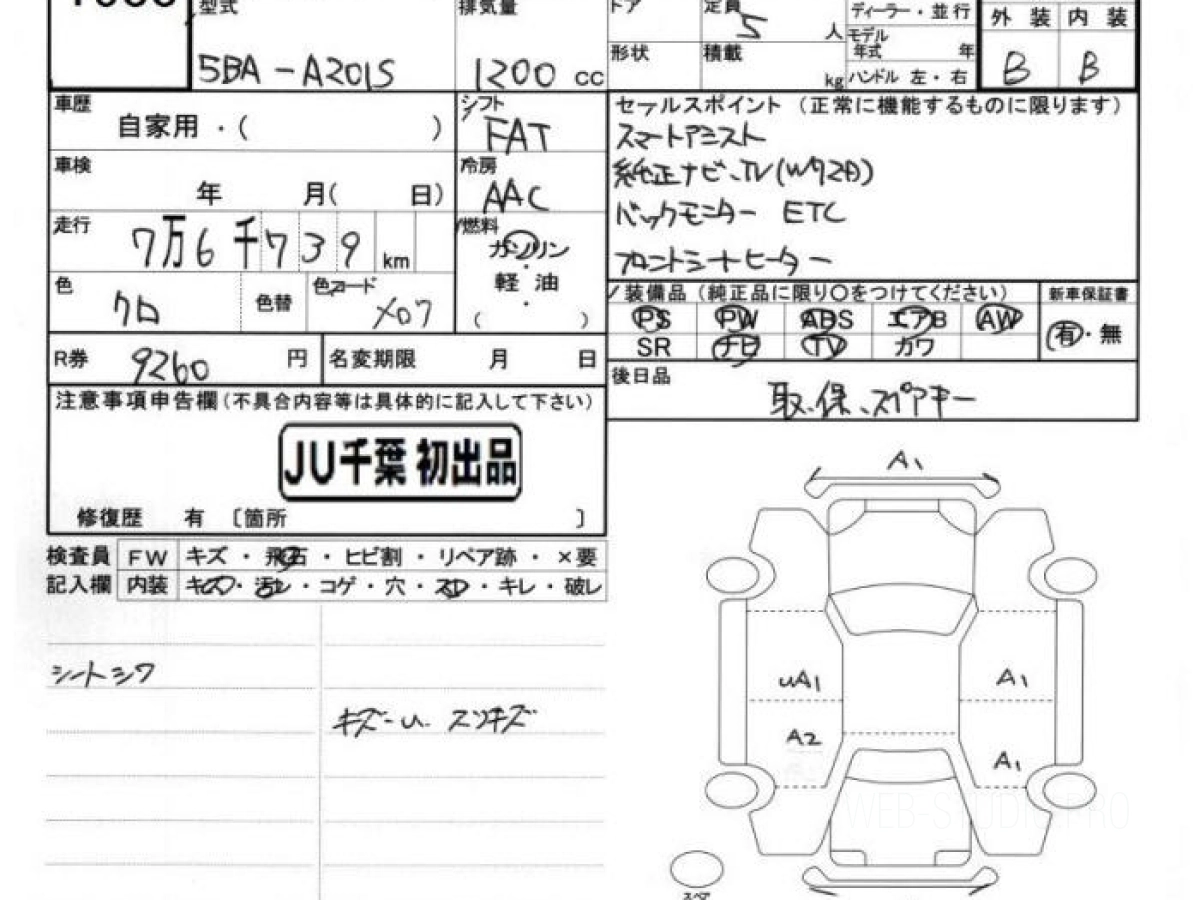 型式
5BA-A201S
排気量
1200 cc
ドア
定員
5 人
ディーラー・並行
モデル年式 年
ハンドル 左・右
形状
積載 kg
外装 内装
B B
車歴
自家用・( )
シフト
FAT
車検
年 月( 日)
冷房
AAC
走行
7万6千739 km
燃料
ガソリン
・
軽油
・
( )
色
クロ
色替
色コード
X07
R券 9260 円
名変期限 月 日
セールスポイント (正常に機能するものに限ります)
スマートアシスト
純正ナビ、TV(W92B)
バックモニター ETC
フロントシートヒーター
装備品(純正品に限り○をつけてください)
新車保証書
PS PW ABS エアB AW
有・無
SR ナビ TV カワ
後日品
取、保、スペアキー
注意事項申告欄(不具合内容等は具体的に記入して下さい)
JU千葉 初出品
修復歴 有 〔箇所 〕
検査員 FW キズ・飛石・ヒビ割・リペア跡・×要
記入欄 内装 キズ・汚レ・コゲ・穴・スレ・キレ・破レ
シートシワ
A1
uA1
A1
A2
A1
WEB-STUDIE.PRO
スペア